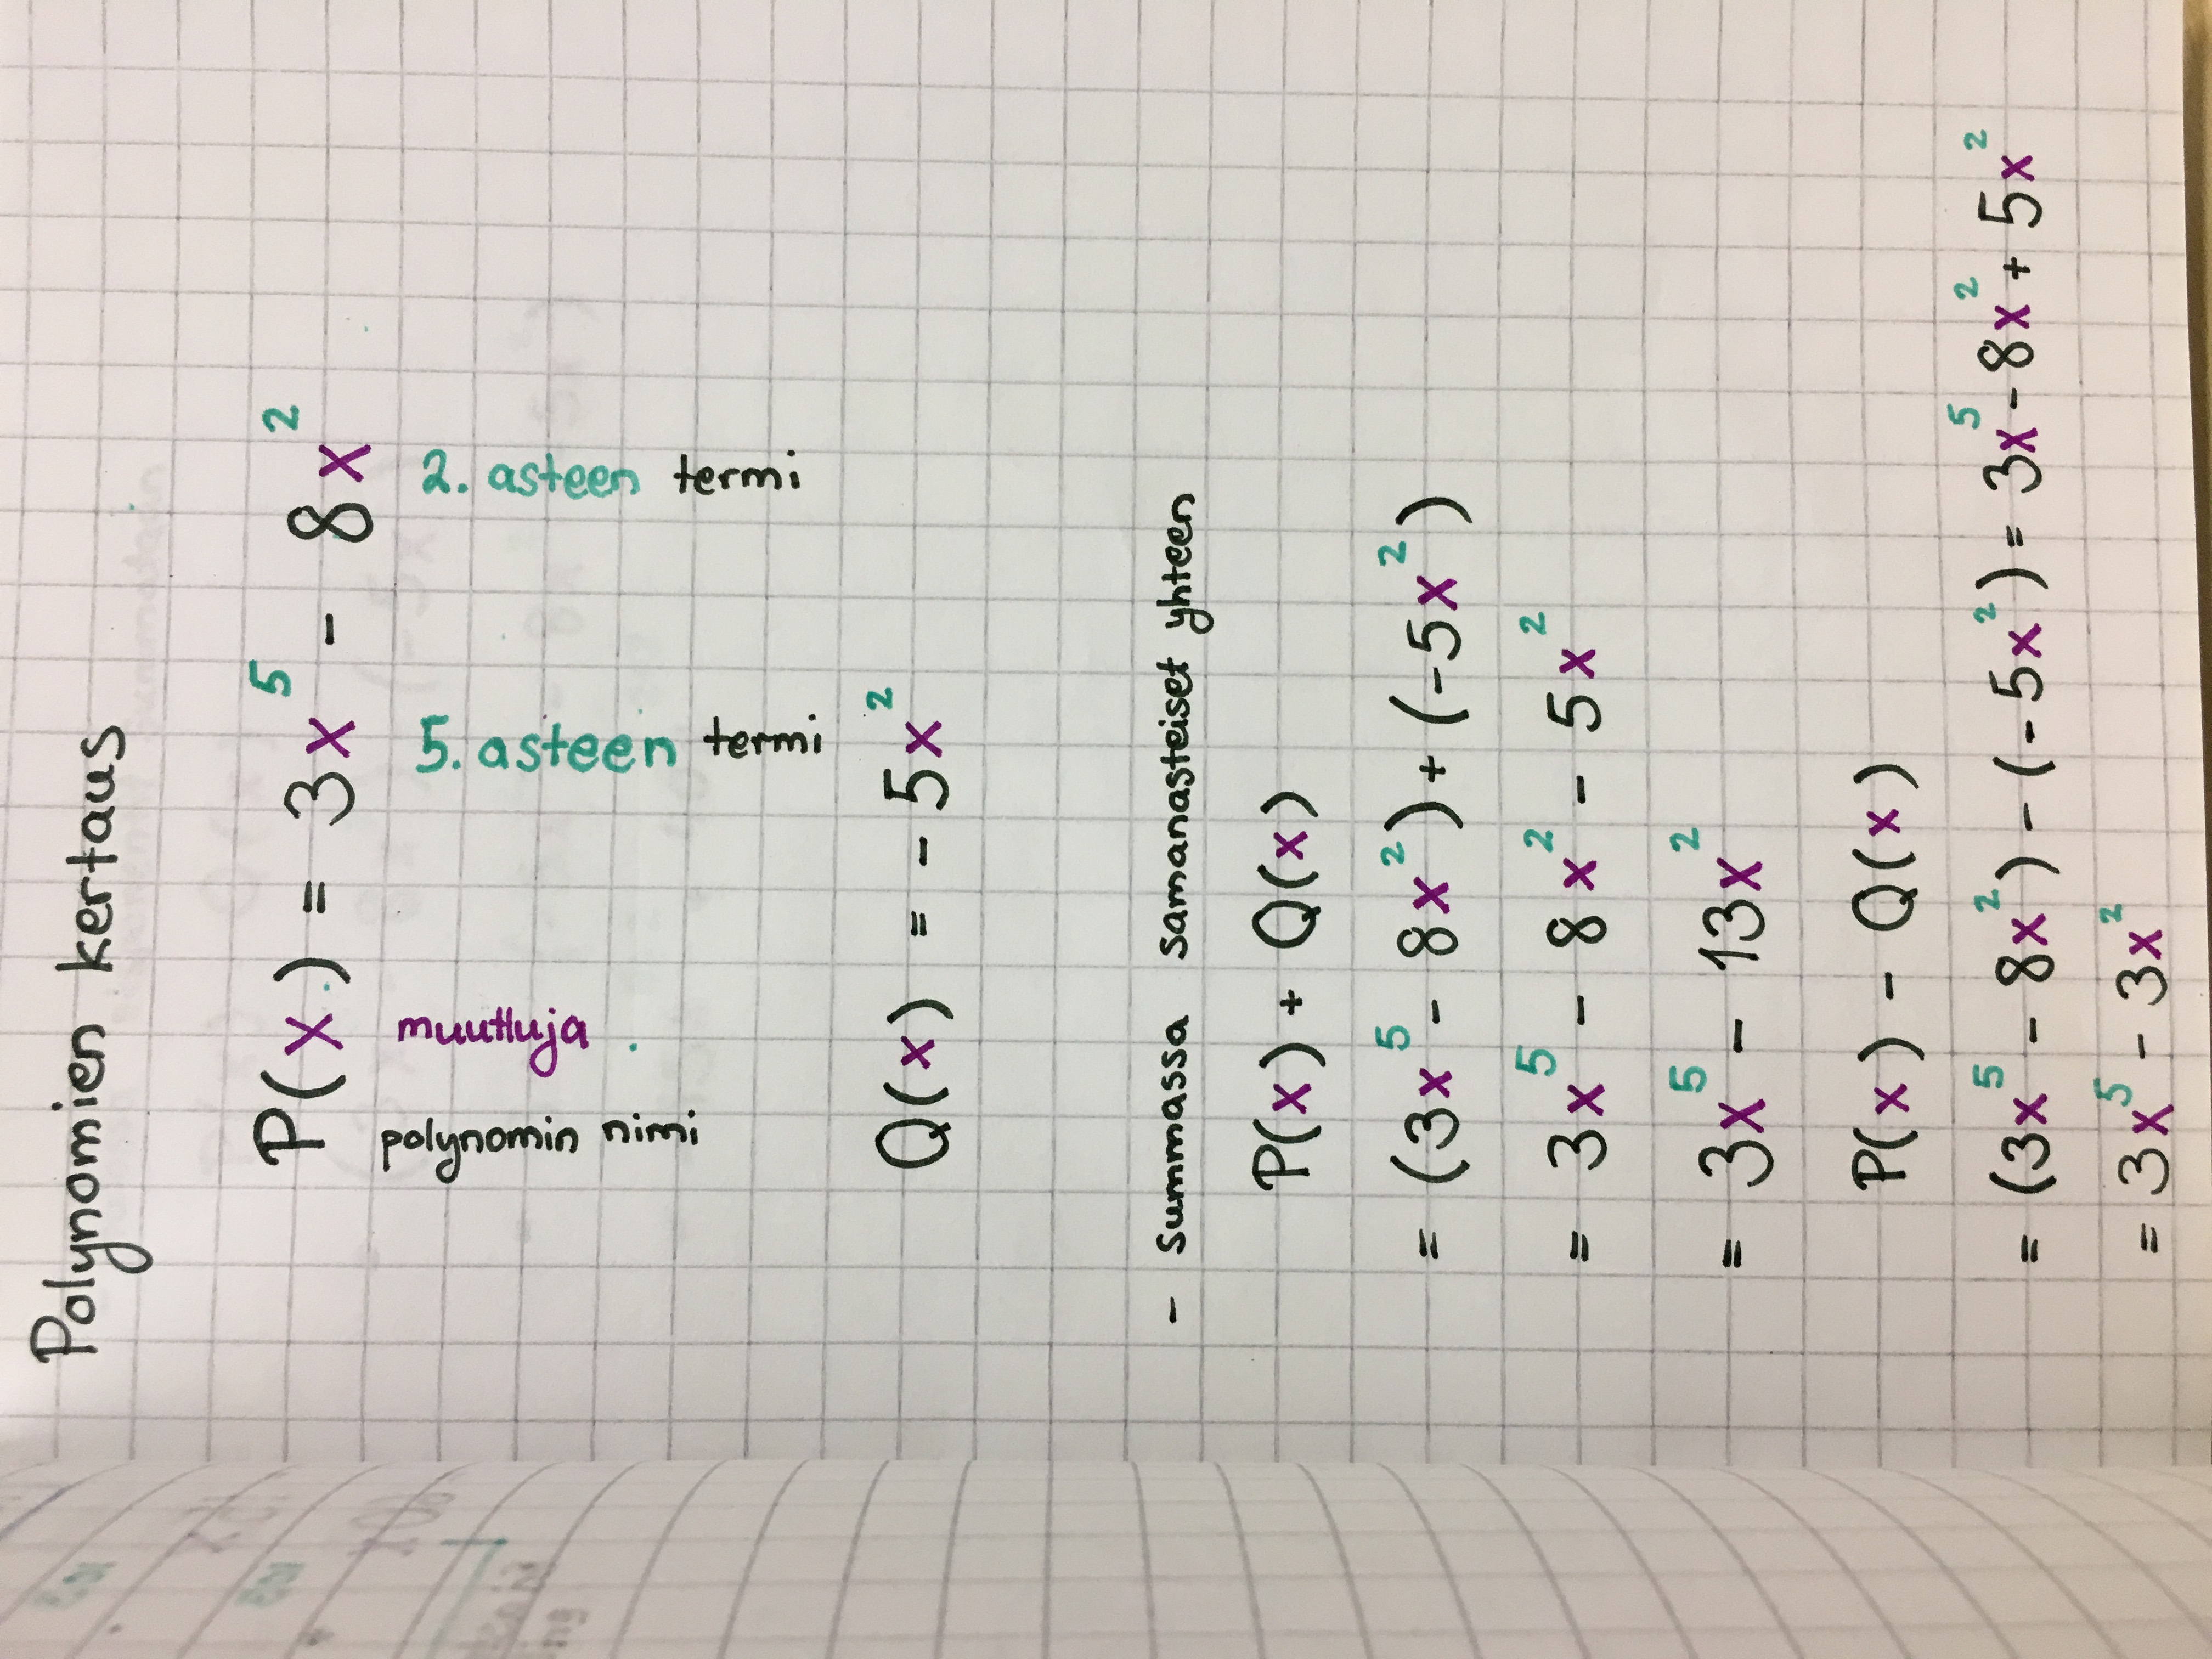 Polynomien kertaus
P(x) = 3x⁵ - 8x²
polynomin nimi muuttuja 5. asteen termi 2. asteen termi
Q(x) = - 5x²
- Summassa samanasteiset yhteen
P(x) + Q(x)
= (3x⁵ - 8x²) + (-5x²)
= 3x⁵ - 8x² - 5x²
= 3x⁵ - 13x²
P(x) - Q(x)
= (3x⁵ - 8x²) - (-5x²) = 3x⁵ - 8x² + 5x²
= 3x⁵ - 3x²